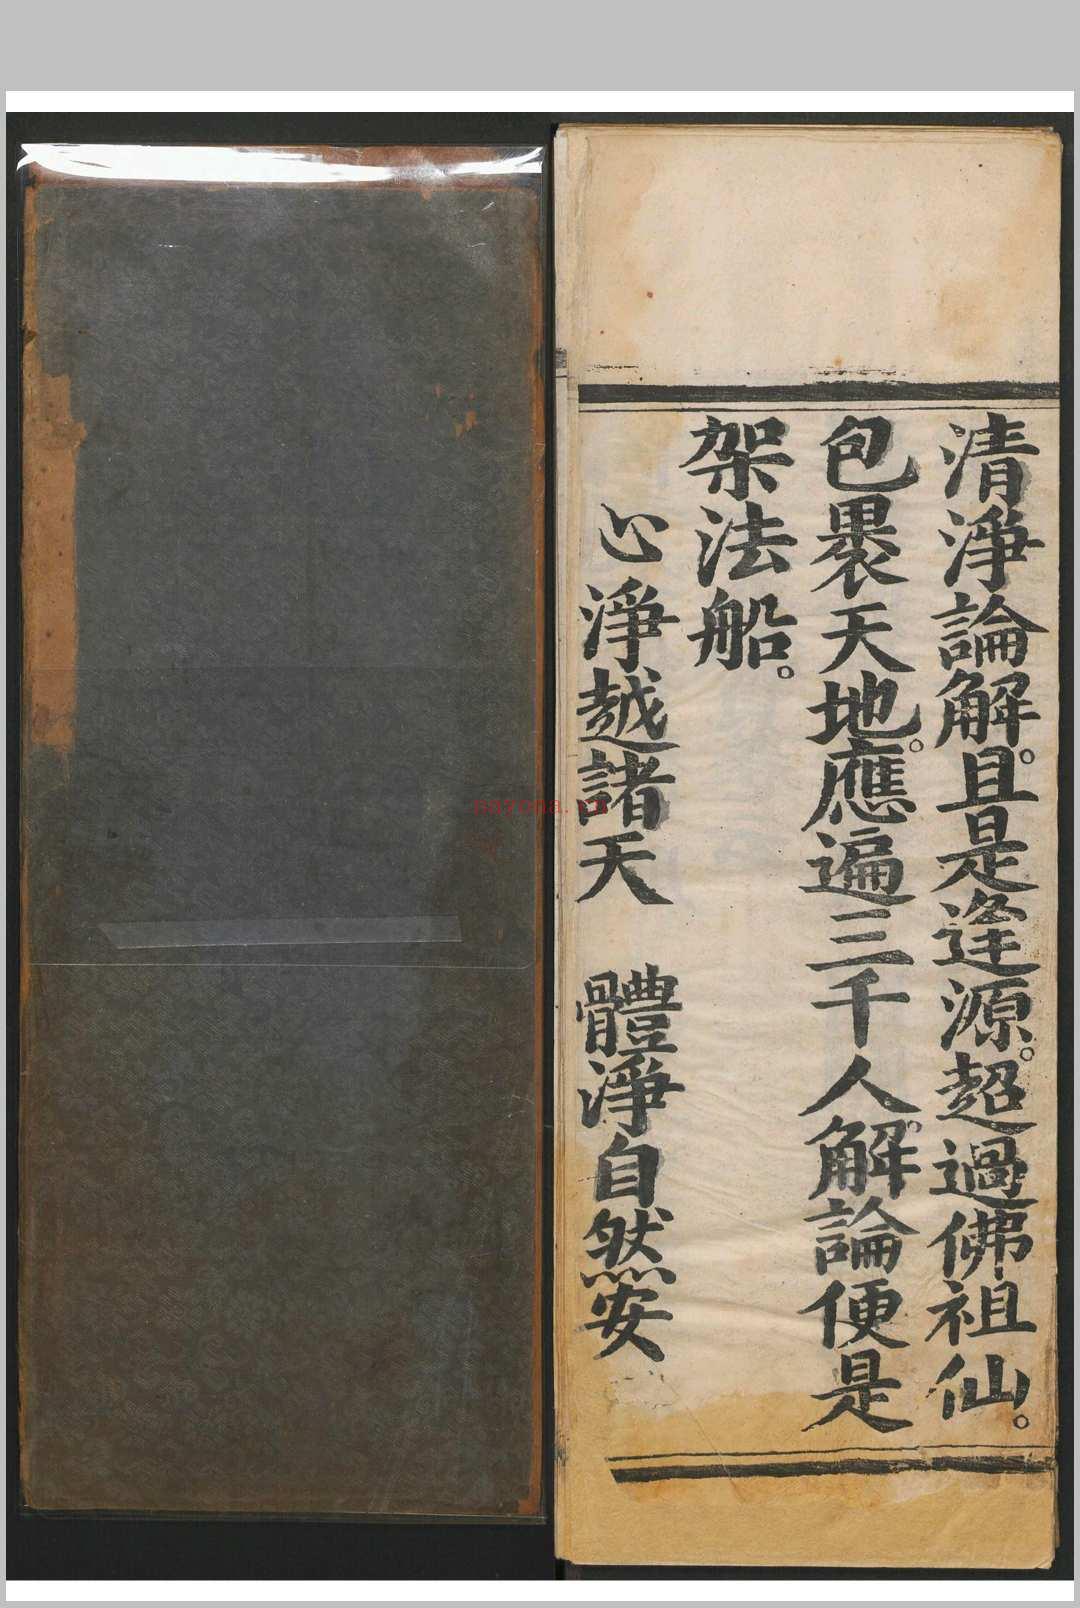 清淨論解。且是逢源。超過佛祖仙。
包裹天地。應遍三千人。解論便是
架法船。
心淨越諸天　體淨自然安
nayona.cn